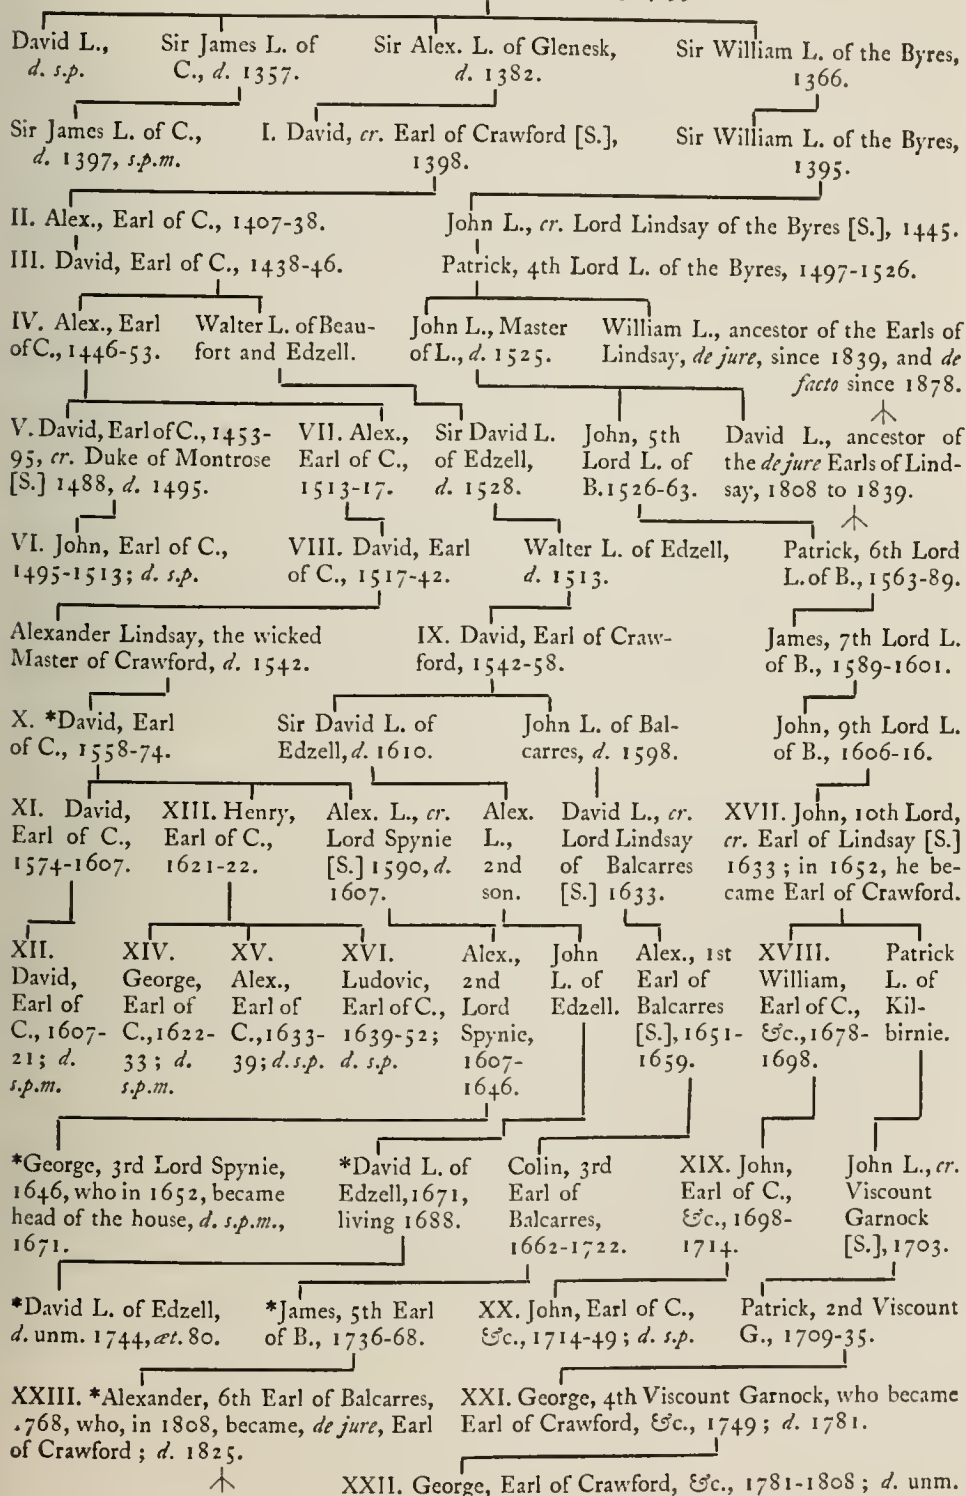 David L.,
d. s.p.
Sir James L. of
C., d. 1357.
Sir Alex. L. of Glenesk,
d. 1382.
Sir William L. of the Byres,
1366.
Sir James L. of C.,
d. 1397, s.p.m.
I. David, cr. Earl of Crawford [S.],
1398.
Sir William L. of the Byres,
1395.
II. Alex., Earl of C., 1407-38.
John L., cr. Lord Lindsay of the Byres [S.], 1445.
III. David, Earl of C., 1438-46.
Patrick, 4th Lord L. of the Byres, 1497-1526.
IV. Alex., Earl
of C., 1446-53.
Walter L. of Beau-
fort and Edzell.
John L., Master
of L., d. 1525.
William L., ancestor of the Earls of
Lindsay, de jure, since 1839, and de
facto since 1878.
V. David, Earl of C., 1453-
95, cr. Duke of Montrose
[S.] 1488, d. 1495.
VII. Alex.,
Earl of C.,
1513-17.
Sir David L.
of Edzell,
d. 1528.
John, 5th
Lord L. of
B. 1526-63.
David L., ancestor of
the de jure Earls of Lind-
say, 1808 to 1839.
VI. John, Earl of C.,
1495-1513; d. s.p.
VIII. David, Earl
of C., 1517-42.
Walter L. of Edzell,
d. 1513.
Patrick, 6th Lord
L. of B., 1563-89.
Alexander Lindsay, the wicked
Master of Crawford, d. 1542.
IX. David, Earl of Craw-
ford, 1542-58.
James, 7th Lord L.
of B., 1589-1601.
X. *David, Earl
of C., 1558-74.
Sir David L. of
Edzell, d. 1610.
John L. of Bal-
carres, d. 1598.
John, 9th Lord L.
of B., 1606-16.
XI. David,
Earl of C.,
1574-1607.
XIII. Henry,
Earl of C.,
1621-22.
Alex. L., cr.
Lord Spynie
[S.] 1590, d.
1607.
Alex.
L.,
2nd
son.
David L., cr.
Lord Lindsay
of Balcarres
[S.] 1633.
XVII. John, 10th Lord,
cr. Earl of Lindsay [S.]
1633; in 1652, he be-
came Earl of Crawford.
XII.
David,
Earl of
C., 1607-
21; d.
s.p.m.
XIV.
George,
Earl of
C., 1622-
33; d.
s.p.m.
XV.
Alex.,
Earl of
C., 1633-
39; d.s.p.
XVI.
Ludovic,
Earl of C.,
1639-52;
d. s.p.
Alex.,
2nd
Lord
Spynie,
1607-
1646.
John
L. of
Edzell.
Alex., 1st
Earl of
Balcarres
[S.], 1651-
1659.
XVIII.
William,
Earl of C.,
&c., 1678-
1698.
Patrick
L. of
Kil-
birnie.
*George, 3rd Lord Spynie,
1646, who in 1652, became
head of the house, d. s.p.m.,
1671.
*David L. of
Edzell, 1671,
living 1688.
Colin, 3rd
Earl of
Balcarres,
1662-1722.
XIX. John,
Earl of C.,
&c., 1698-
1714.
John L., cr.
Viscount
Garnock
[S.], 1703.
*David L. of Edzell,
d. unm. 1744, æt. 80.
*James, 5th Earl
of B., 1736-68.
XX. John, Earl of C.,
&c., 1714-49; d. s.p.
Patrick, 2nd Viscount
G., 1709-35.
XXIII. *Alexander, 6th Earl of Balcarres,
.768, who, in 1808, became, de jure, Earl
of Crawford; d. 1825.
XXI. George, 4th Viscount Garnock, who became
Earl of Crawford, &c., 1749; d. 1781.
XXII. George, Earl of Crawford, &c., 1781-1808; d. unm.